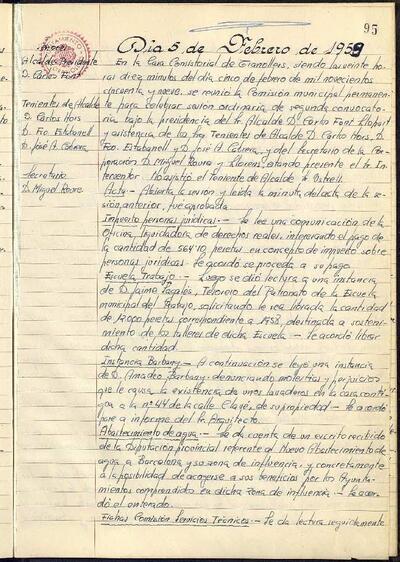 95
Dia 5 de Febrero de 1959
Alcalde Presidente
D. Carlos Font
Tenientes de Alcalde
D. Carlos Hors
D. Fco. Estabanell
D. José A. Cabrera
Secretario
D. Miguel Roure
En la Casa Consistorial de Granollers, siendo las veinte ho-
ras diez minutos del dia cinco de febrero de mil novecientos
cincuenta y nueve, se reunió la Comisión municipal permanen-
te para celebrar sesión ordinaria de segunda convocato-
ria, bajo la presidencia del Sr. Alcalde D. Carlos Font Llopart
y asistencia de los Srs. Tenientes de Alcalde D. Carlos Hors, D.
Fco. Estabanell y D. José A. Cabrera, y del Secretario de la Cor-
poración D. Miguel Roure y Llorens, estando presente el Sr. In-
terventor. No asistió el Teniente de Alcalde Sr.
Acta.- Abierta la sesión y leida la minuta del acta de la se-
sión anterior, fue aprobada.
Impuesto personas juridicas.- Se lee una comunicación de la
Oficina liquidadora de derechos reales, interesando el pago de
la cantidad de pesetas en concepto de impuesto sobre
personas juridicas. Se acordó se proceda a su pago.
Escuela Trabajo.- Luego se dió lectura a una instancia
de D. Jaime Pagés, Tesorero del Patronato de la Escuela
municipal del Trabajo, solicitando le sea librada la cantidad
de 12000 pesetas correspondiente a 1958, destinada a sosteni-
miento de los talleres de dicha Escuela.- Se acordó librar
dicha cantidad.
Instancia Barbany.- A continuación se leyó una instancia
de D. Amadeo Barbany denunciando molestias y perjuicios
que le causa la existencia de unos lavaderos en la casa conti-
gua a la nº 44 de la calle de su propiedad.- Se acordó
pase a informe del Sr. Arquitecto.
Abastecimiento de agua.- Se da cuenta de un escrito recibido
de la Diputación provincial referente al Nuevo Abastecimiento de
agua a Barcelona y su zona de influencia, y concretamente
a la posibilidad de acogerse a sus beneficios por los Ayunta-
mientos comprendidos en dicha zona de influencia.- Se acor-
dó el enterado.
Fichas Comisión Servicios Técnicos.- Se da lectura seguidamente